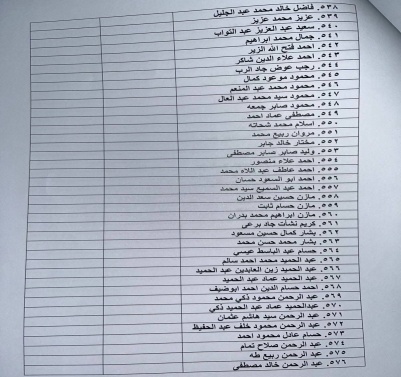 ٥٣٨. فاضل خالد محمد عبد الجليل
٥٣٩. عزيز محمد عزيز
٥٤٠. سعيد عبد العزيز عبد التواب
٥٤١. جمال محمد ابراهيم
٥٤٢. احمد فتح الله الزير
٥٤٣. احمد علاء الدين شاكر
٥٤٤. رجب عوض جاد الرب
٥٤٥. محمود موعود كمال
٥٤٦. محمود محمد عبد المنعم
٥٤٧. محمود سيد محمد عبد العال
٥٤٨. محمود صابر جمعه
٥٤٩. مصطفى عماد احمد
٥٥٠. اسلام محمد شحاته
٥٥١. مروان ربيع محمد
٥٥٢. مختار خالد جابر
٥٥٣. وليد صابر صابر مصطفى
٥٥٤. احمد علاء منصور
٥٥٥. احمد عاطف عبد اللاه محمد
٥٥٦. احمد ابو السعود حسان
٥٥٧. احمد عبد السميع سيد محمد
٥٥٨. مازن حسين سعد الدين
٥٥٩. مازن حسام ثابت
٥٦٠. مازن ابراهيم محمد بدران
٥٦١. كريم نشأت جاد برعى
٥٦٢. بشار كمال حسين مسعود
٥٦٣. بشار محمد حسن محمد
٥٦٤. حسام عبد الباسط عيسي
٥٦٥. عبد الحميد محمد احمد سالم
٥٦٦. عبد الحميد زين العابدين عبد الحميد
٥٦٧. عبد الحميد عماد عبد الحميد
٥٦٨. احمد حسام الدين احمد ابوضيف
٥٦٩. عبد الرحمن محمود ذكي محمد
٥٧٠. عبدالحميد عماد عبد الحميد ذكي
٥٧١. عبد الرحمن سيد هاشم عثمان
٥٧٢. عبد الرحمن محمود خلف عبد الحفيظ
٥٧٣. حسام عادل محمود احمد
٥٧٤. عبد الرحمن صلاح تمام
٥٧٥. عبد الرحمن ربيع طه
٥٧٦. عبد الرحمن خالد مصطفى